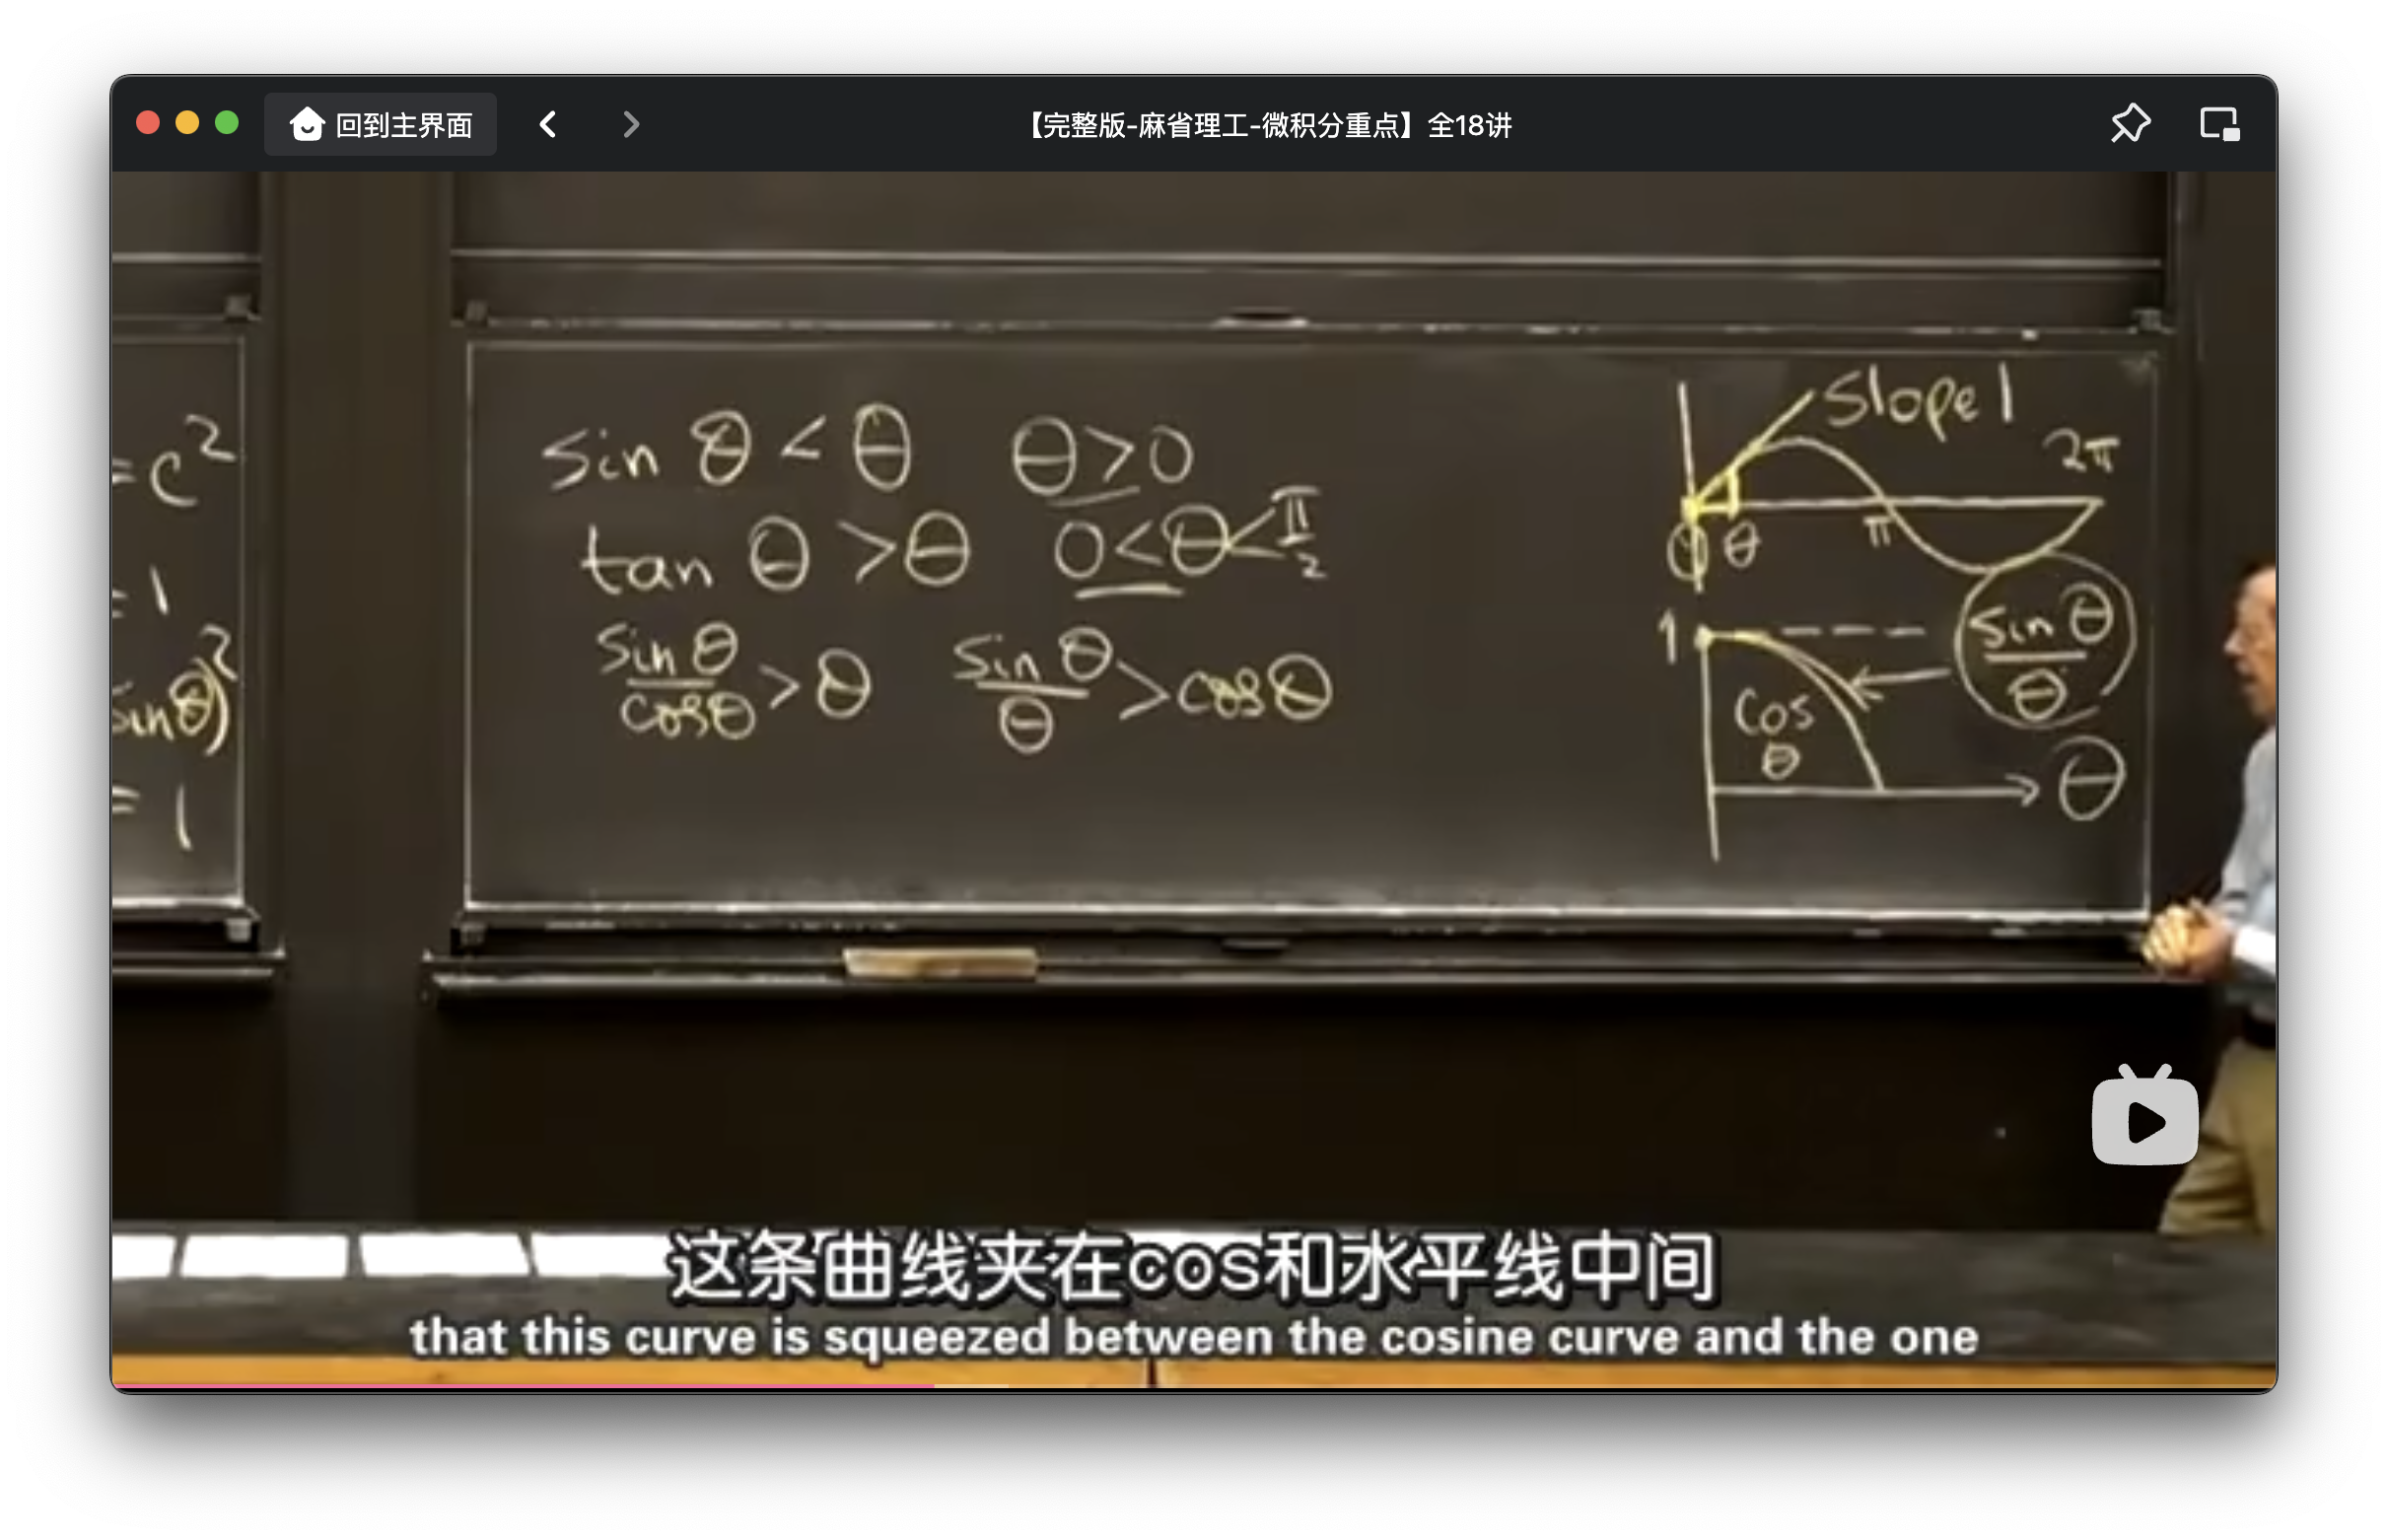 回到主界面
【完整版-麻省理工-微积分重点】全18讲
= c²
= 1
sinθ)²
= 1
sin θ < θ θ > 0
tan θ > θ 0 < θ < π/2
sin θ / cos θ > θ sin θ / θ > cos θ
Slope 1
2π
0 θ π
1
sin θ / θ
cos
θ
θ
这条曲线夹在cos和水平线中间
that this curve is squeezed between the cosine curve and the one